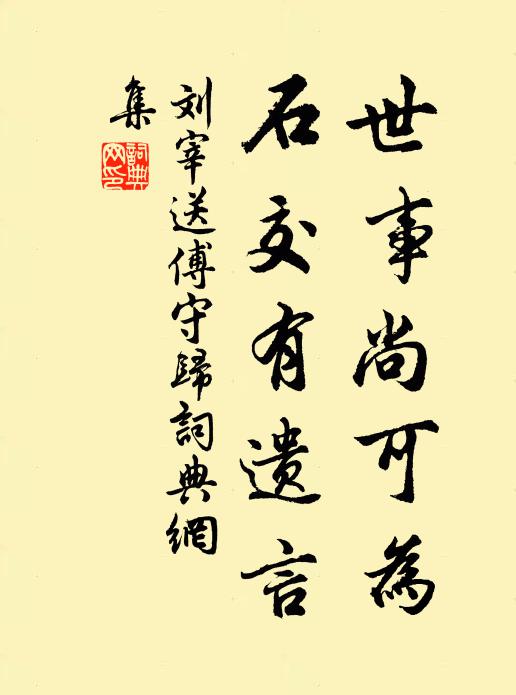 世事尚可為
石交有遺言
刘宰送傅守歸詞典網
集
詞典
网印